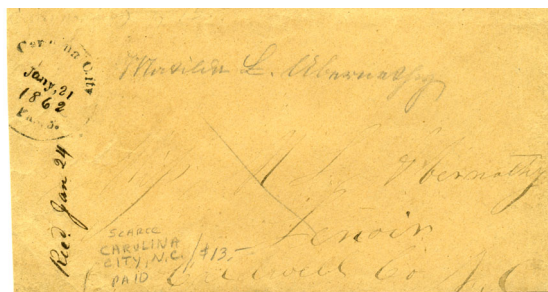 Carolina City
Jany, 21
1862
Paid 5
Matilda L. Abernathy
Recd Jan 24
Abernathy
Lenoir
Caldwell Co N. C
SCARCE
CAROLINA
CITY, N.C.
PAID
$13-